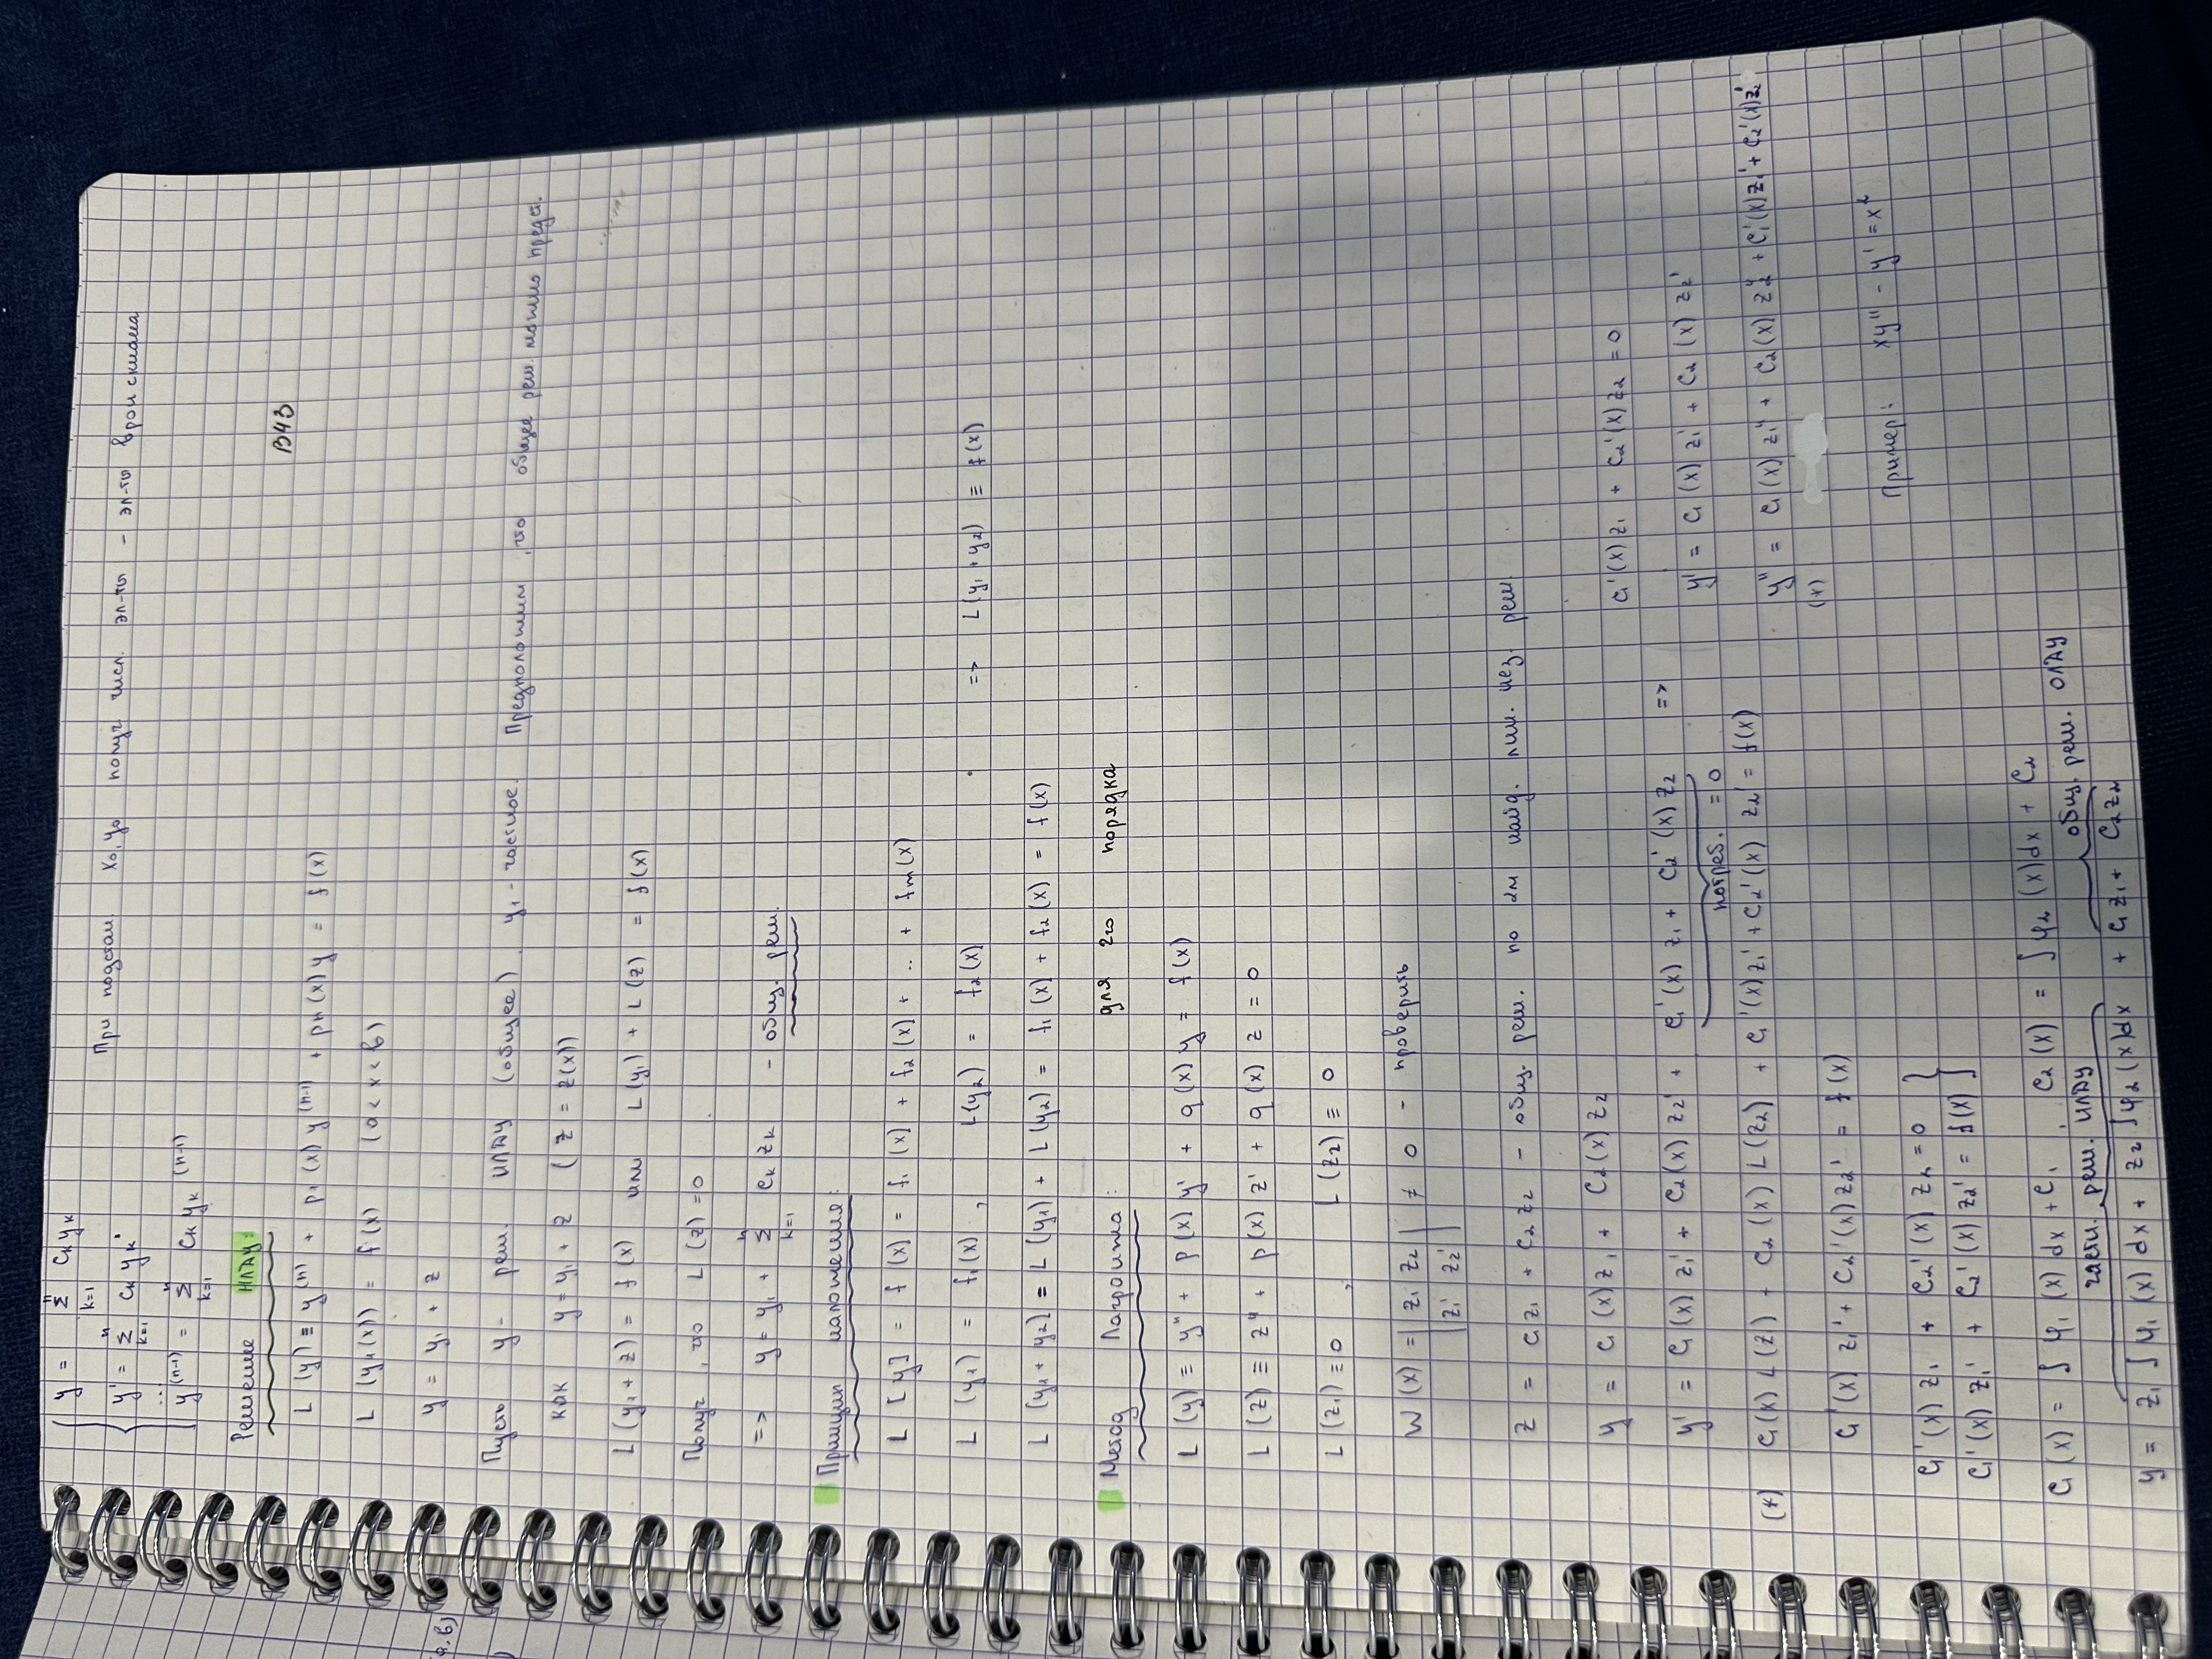 y = Σ_{k=1}^{n} C_k y_k
y' = Σ_{k=1}^{n} C_k y_k'
При подстан. x₀, y₀ получ числ. эл-ты – эл-ты вронскиана
...
y^{(n-1)} = Σ_{k=1}^{n} C_k y_k^{(n-1)}
Решение НЛДУ:
В43
L(y) ≡ y^{(n)} + p₁(x) y^{(n-1)} + pn(x) y = f(x)
L(y₁(x)) = f(x) (a < x < b)
а, в)
y = y₁ + z
Пусть y – реш. НЛДУ (общее), y₁ – частное. Предположим, что общее реш. можно предст.
как y = y₁ + z (z = z(x))
L(y₁ + z) = f(x) или L(y₁) + L(z) = f(x)
Получ, что L(z) = 0
=> y = y₁ + Σ_{k=1}^{n} C_k z_k – общ. реш.
Принцип наложения:
L[y] = f(x) = f₁(x) + f₂(x) + .. + fm(x)
L(y₁) = f₁(x), L(y₂) = f₂(x) => L(y₁ + y₂) ≡ f(x)
L(y₁ + y₂) = L(y₁) + L(y₂) = f₁(x) + f₂(x) = f(x)
Метод Лагранжа: для 2го порядка
L(y) ≡ y'' + p(x) y' + q(x) y = f(x)
L(z) ≡ z'' + p(x) z' + q(x) z = 0
L(z₁) ≡ 0, L(z₂) ≡ 0
W(x) = | z₁ z₂ | ≠ 0 – проверить
| z₁' z₂' |
z = C₁z₁ + C₂z₂ – общ. реш. по 2м найд. лин. нез. реш.
y = C₁(x) z₁ + C₂(x) z₂
C₁'(x) z₁ + C₂'(x) z₂ = 0
y' = C₁(x) z₁' + C₂(x) z₂' + C₁'(x) z₁ + C₂'(x) z₂ =>
y' = C₁(x) z₁' + C₂(x) z₂'
потреб. = 0
(*) C₁(x) L(z₁) + C₂(x) L(z₂) + C₁'(x) z₁' + C₂'(x) z₂' = f(x)
y'' = C₁(x) z₁'' + C₂(x) z₂'' + C₁'(x) z₁' + C₂'(x) z₂'
(*)
C₁'(x) z₁' + C₂'(x) z₂' = f(x)
Пример: xy'' – y' = x²
C₁'(x) z₁ + C₂'(x) z₂ = 0
C₁'(x) z₁' + C₂'(x) z₂' = f(x)
C₁(x) = ∫ φ₁(x) dx + C₁, C₂(x) = ∫ φ₂(x) dx + C₂
частн. реш. НЛДУ общ. реш. ОЛДУ
y = z₁ ∫ φ₁(x) dx + z₂ ∫ φ₂(x) dx + C₁z₁ + C₂z₂